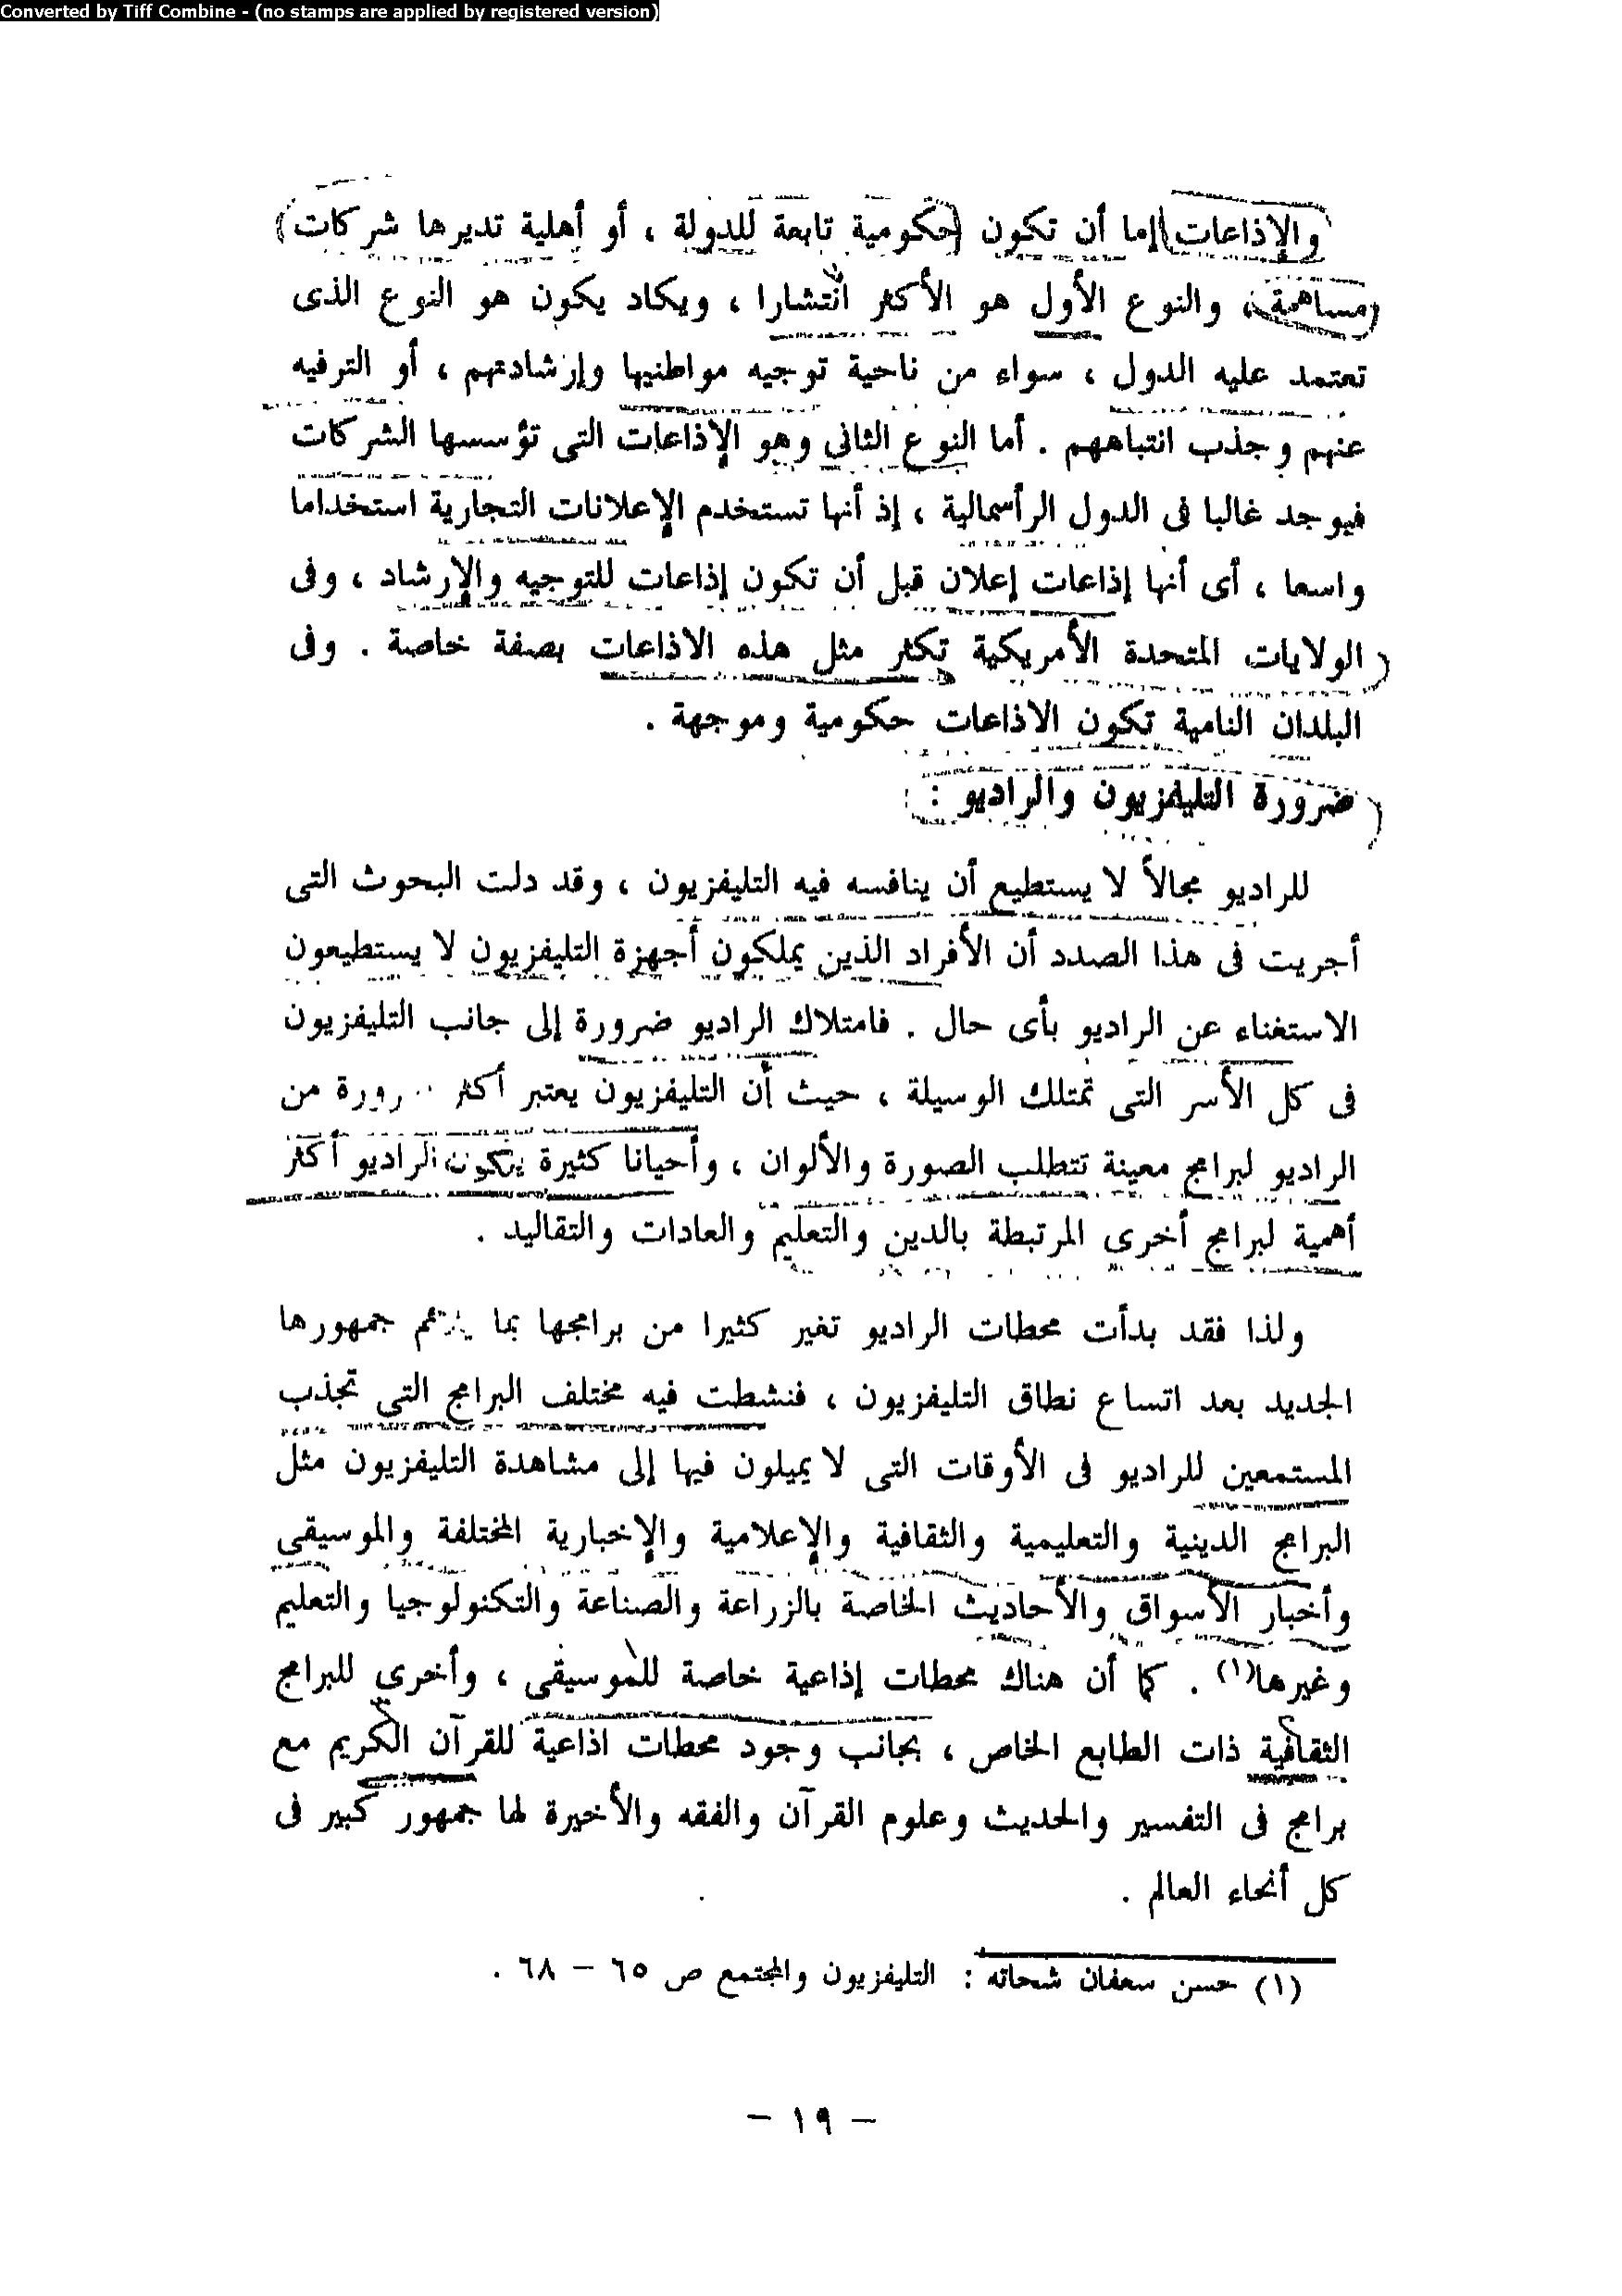 Converted by Tiff Combine - (no stamps are applied by registered version)
والإذاعات إما أن تكون (حكومية تابعة للدولة ، أو أهلية تديرها شركات)
مساهمة ، والنوع الأول هو الأكثر انتشارا ، ويكاد يكون هو النوع الذى
تعتمد عليه الدول ، سواء من ناحية توجيه مواطنيها وإرشادتهم ، أو الترفيه
عنهم وجذب انتباههم . أما النوع الثانى وهو الإذاعات التى تؤسسها الشركات
فيوجد غالبا فى الدول الرأسمالية ، إذ أنها تستخدم الإعلانات التجارية استخداما
واسعا ، أى أنها إذاعات إعلان قبل أن تكون إذاعات للتوجيه والإرشاد ، وفى
الولايات المتحدة الأمريكية تكثر مثل هذه الاذاعات بصفة خاصة . وفى
البلدان النامية تكون الاذاعات حكومية وموجهة .
ضرورة التليفزيون والراديو :
للراديو مجالاً لا يستطيع أن ينافسه فيه التليفزيون ، وقد دلت البحوث التى
أجريت فى هذا الصدد أن الأفراد الذين يملكون أجهزة التليفزيون لا يستطيعون
الاستغناء عن الراديو بأى حال . فامتلاك الراديو ضرورة إلى جانب التليفزيون
فى كل الأسر التى تمتلك الوسيلة ، حيث أن التليفزيون يعتبر أكثر ضرورة من
الراديو لبرامج معينة تتطلب الصورة والألوان ، وأحيانا كثيرة يكون الراديو أكثر
أهمية لبرامج أخرى المرتبطة بالدين والتعليم والعادات والتقاليد .
ولذا فقد بدأت محطات الراديو تغير كثيرا من برامجها بما يلائم جمهورها
الجديد بعد اتساع نطاق التليفزيون ، فنشطت فيه مختلف البرامج التى تجذب
المستمعين للراديو فى الأوقات التى لا يميلون فيها إلى مشاهدة التليفزيون مثل
البرامج الدينية والتعليمية والثقافية والإعلامية والإخبارية المختلفة والموسيقى
وأخبار الأسواق والأحاديث الخاصة بالزراعة والصناعة والتكنولوجيا والتعليم
وغيرها(١) . كما أن هناك محطات إذاعية خاصة للموسيقى ، وأخرى للبرامج
الثقافية ذات الطابع الخاص ، بجانب وجود محطات اذاعية للقرآن الكريم مع
برامج فى التفسير والحديث وعلوم القرآن والفقه والأخيرة لها جمهور كبير فى
كل أنحاء العالم .
(١) حسن سعفان شحاته : التليفزيون والمجتمع ص ٦٥ – ٦٨ .
– ١٩ –